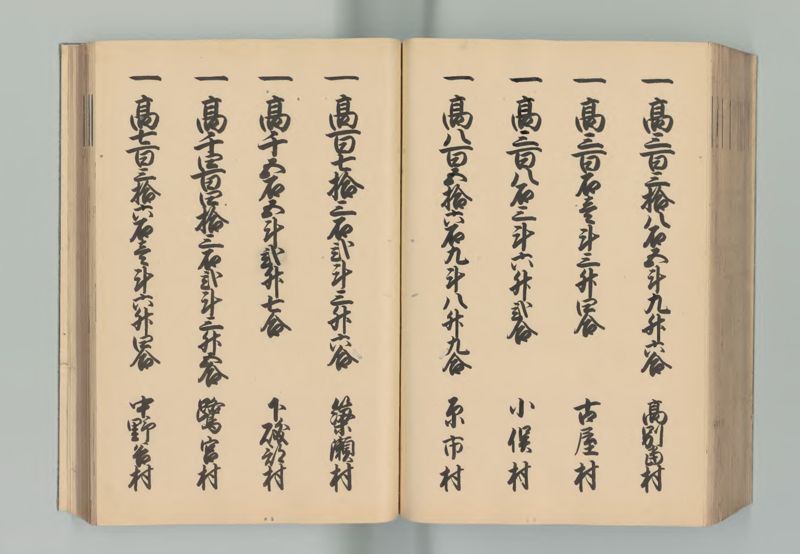 一 高三百三拾八石五斗九升六合 高別当村
一 高三百石壱斗三升四合 古屋村
一 高三百八石三斗六升弐合 小俣村
一 高八百五拾六石九斗八升九合 原市村
一 高百七拾三石弐斗三升六合 簗瀬村
一 高千五石五斗弐升七合 下磯部村
一 高千四百四拾三石弐斗三升 鷺宮村
一 高七百三拾六石壱斗六升四合 中野谷村